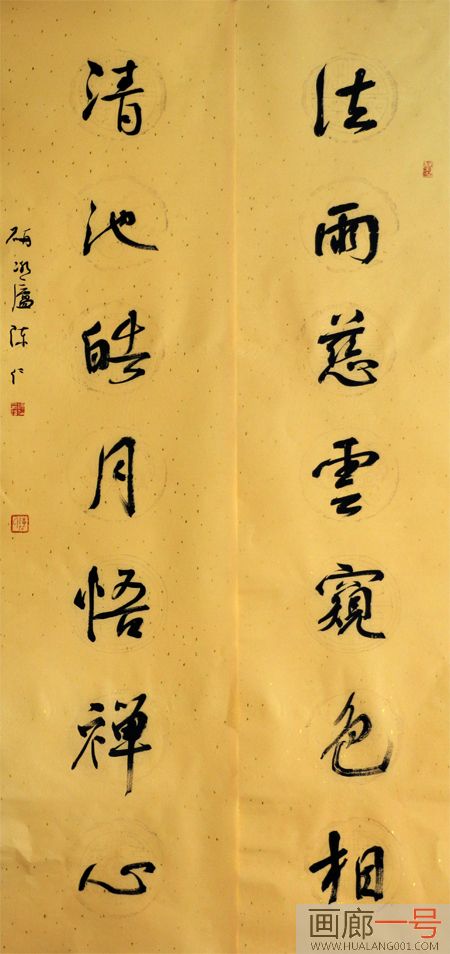 法雨慈雲窺色相
清池皓月悟禪心
陳仁
画廊一号
WWW.HUALANG001.COM